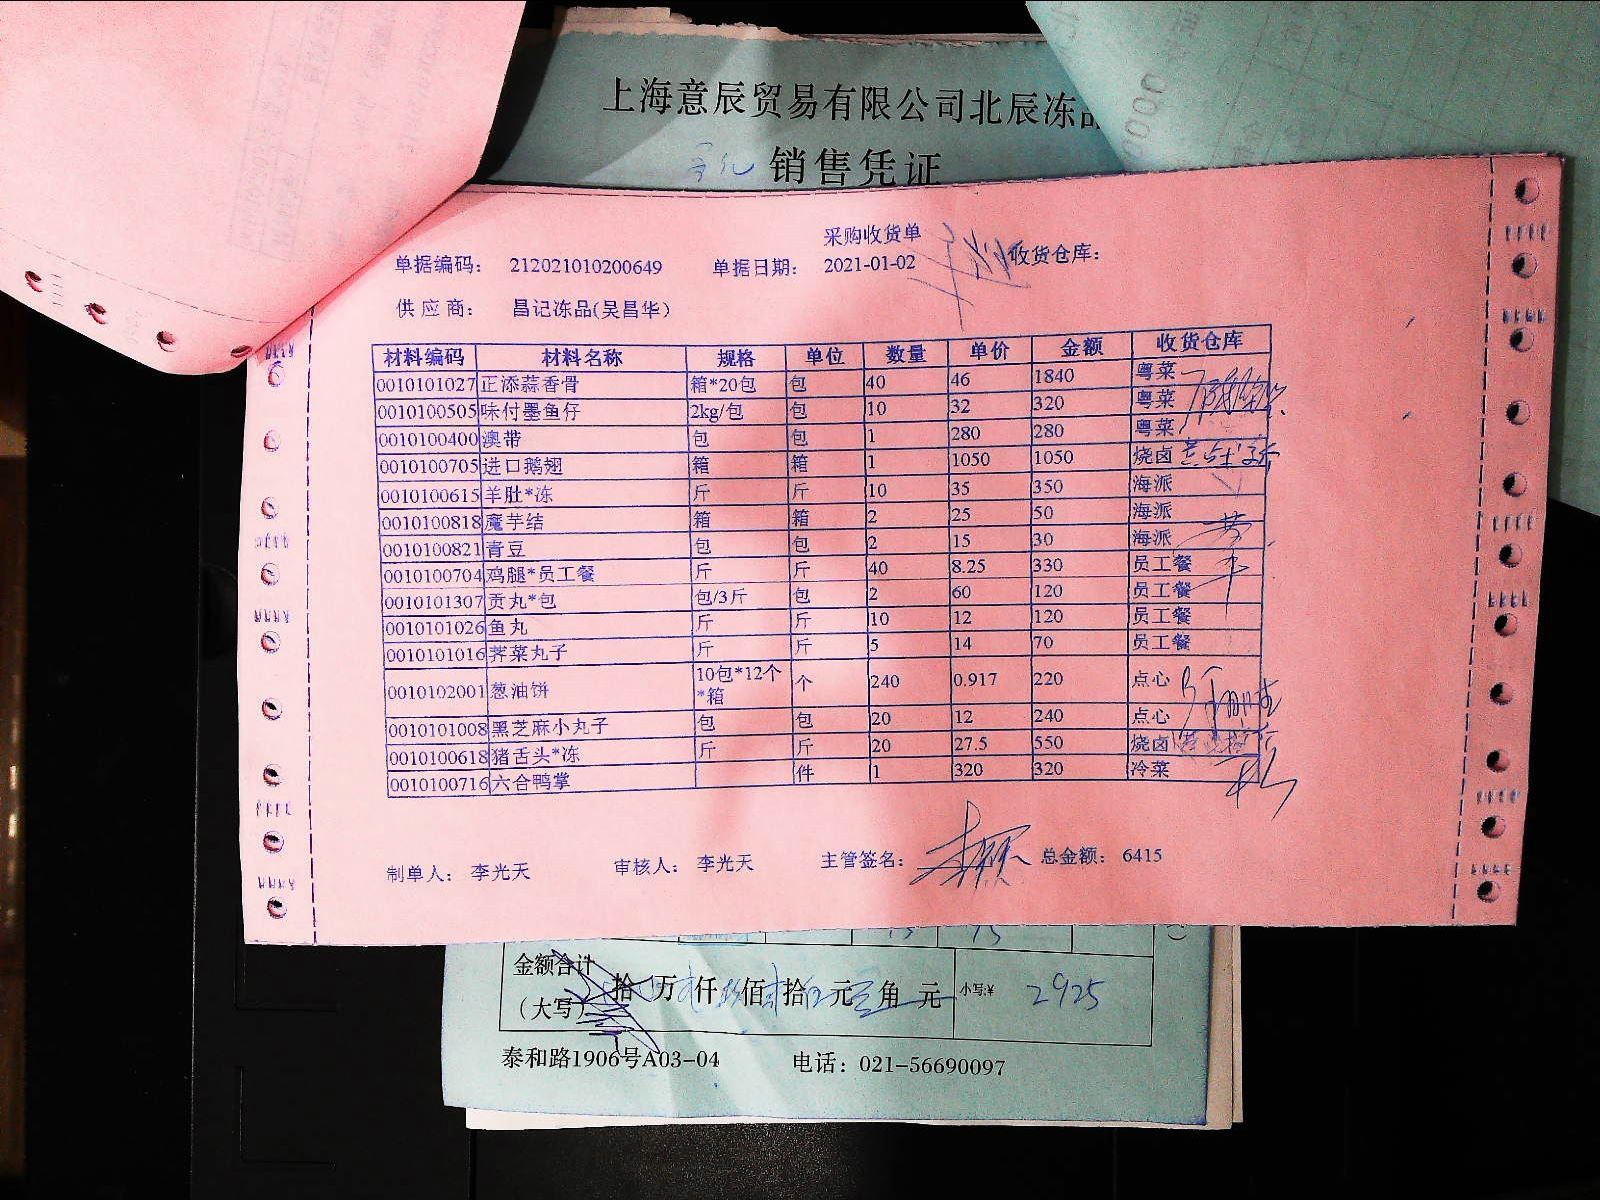 上海意辰贸易有限公司北辰冻品
销售凭证
采购收货单
单据编码： 212021010200649 单据日期： 2021-01-02 收货仓库：
供应商： 昌记冻品(吴昌华)
材料编码 材料名称 规格 单位 数量 单价 金额 收货仓库
0010101027 正添蒜香骨 箱*20包 包 40 46 1840 粤菜
0010100505 味付墨鱼仔 2kg/包 包 10 32 320 粤菜
0010100400 澳带 包 包 1 280 280 粤菜
0010100705 进口鹅翅 箱 箱 1 1050 1050 烧卤
0010100615 羊肚*冻 斤 斤 10 35 350 海派
0010100818 魔芋结 箱 箱 2 25 50 海派
0010100821 青豆 包 包 2 15 30 海派
0010100704 鸡腿*员工餐 斤 斤 40 8.25 330 员工餐
0010101307 贡丸*包 包/3斤 包 2 60 120 员工餐
0010101026 鱼丸 斤 斤 10 12 120 员工餐
0010101016 荠菜丸子 斤 斤 5 14 70 员工餐
0010102001 葱油饼 10包*12个*箱 个 240 0.917 220 点心
0010101008 黑芝麻小丸子 包 包 20 12 240 点心
0010100618 猪舌头*冻 斤 斤 20 27.5 550 烧卤
0010100716 六合鸭掌 件 1 320 320 冷菜
制单人： 李光天 审核人： 李光天 主管签名： 总金额： 6415
金额合计
（大写） 拾 万 仟 佰 拾 元 角 元 小写:¥ 2925
泰和路1906号A03-04 电话：021-56690097